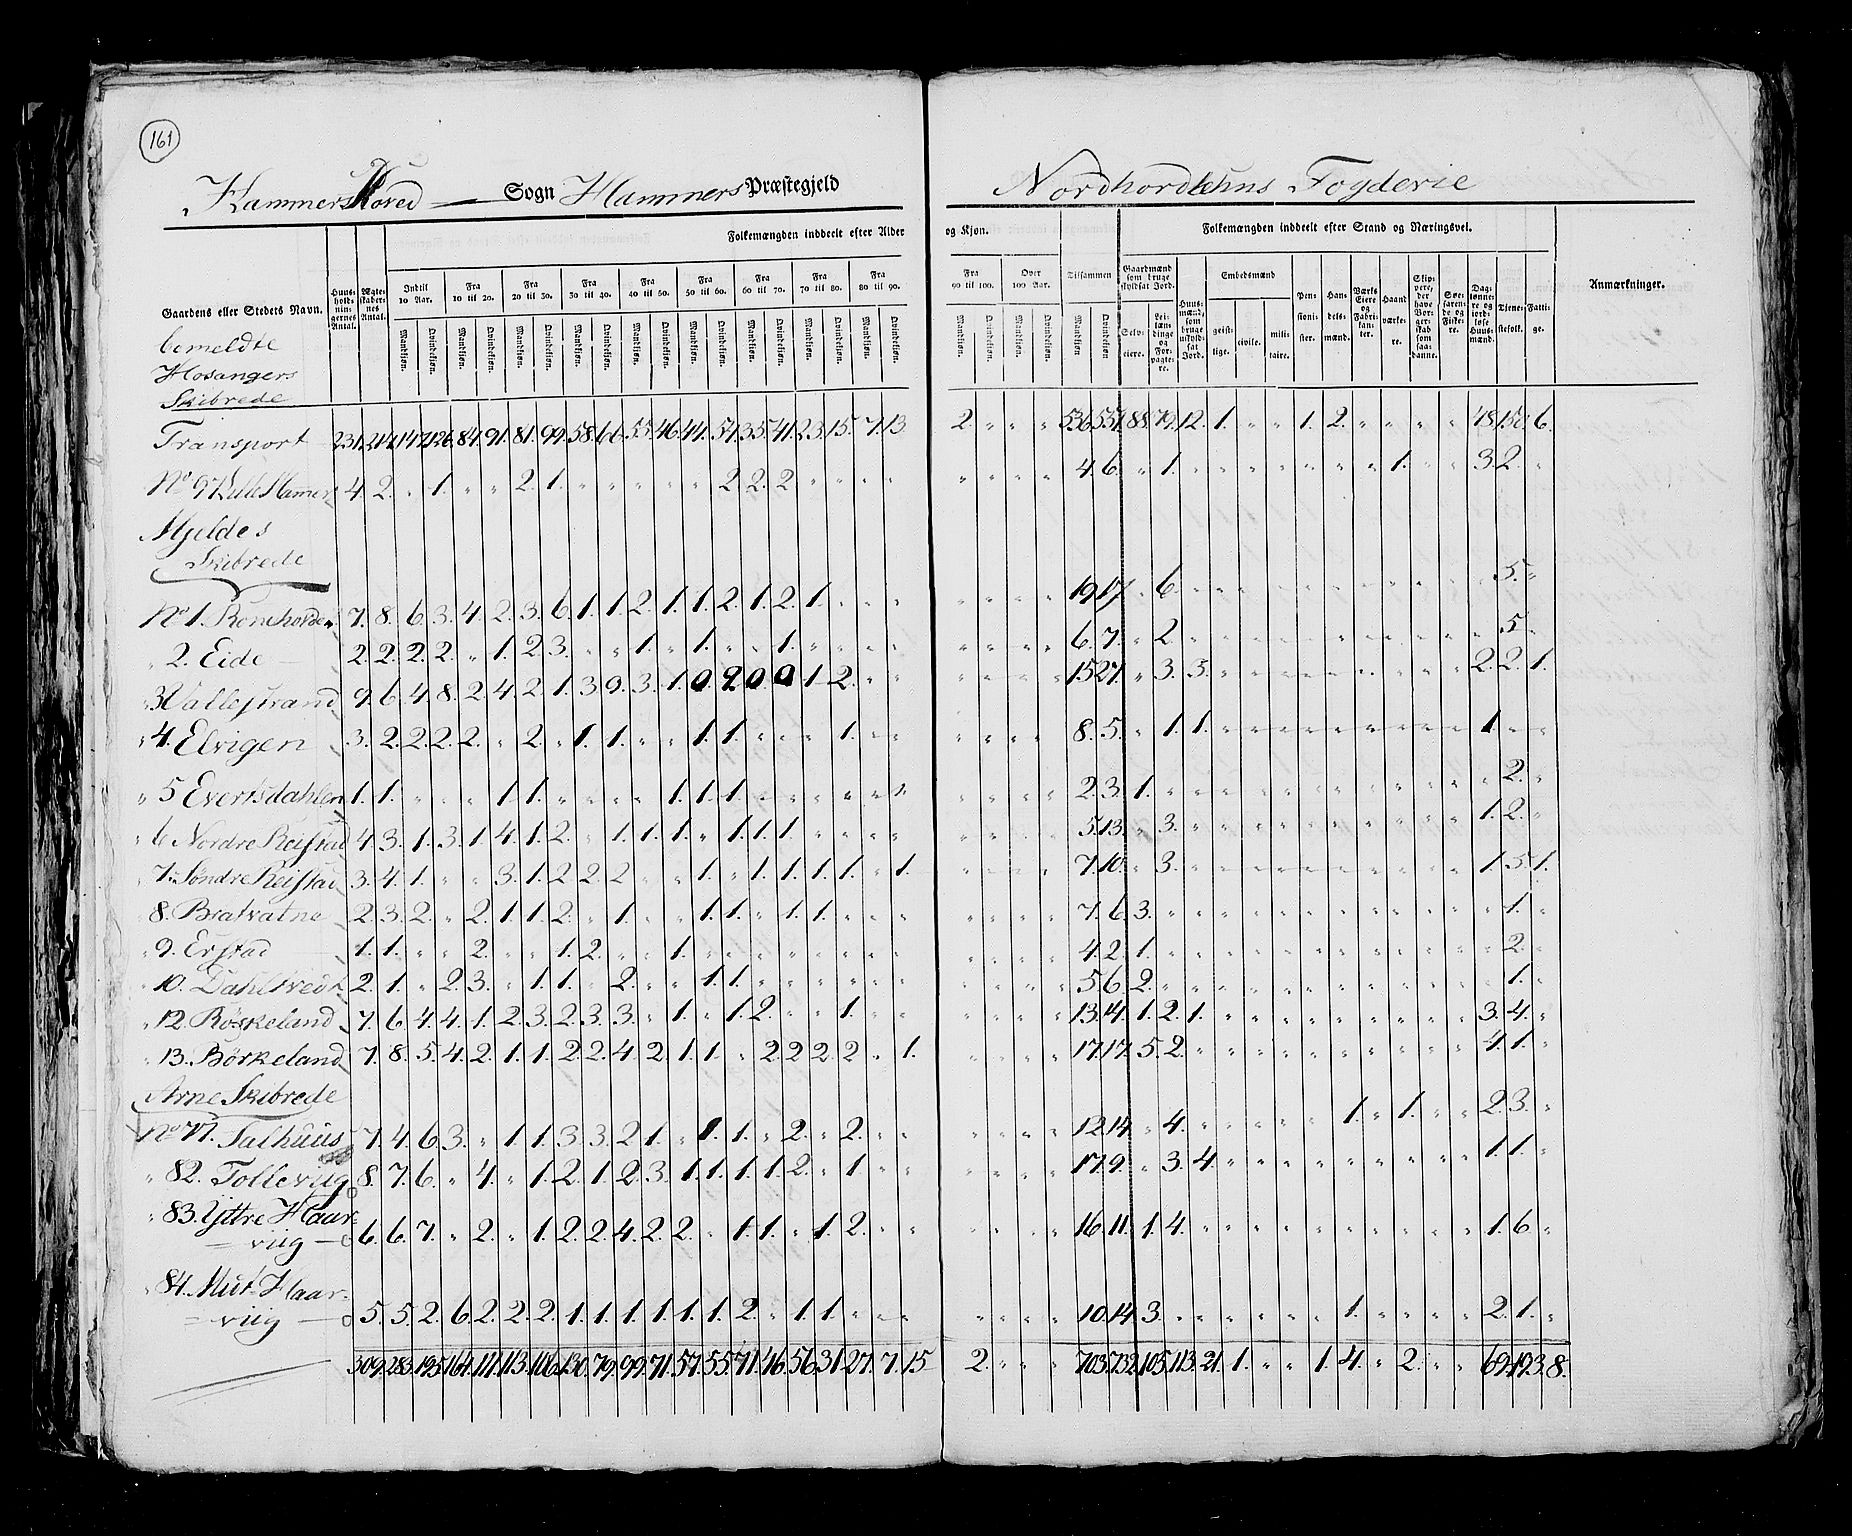 161
Hammers Hoved Sogn Hammers Præstegjeld
Nordhordlehns Fogderie
Gaardens eller Stedets Navn.
Huus-holdningernes Antal.
Ægteskabernes Antal.
Folkemængden inddeelt efter Alder og Kjøn.
Folkemængden inddeelt efter Stand og Næringsvei.
Anmærkninger.
Indtil 10 Aar. Fra 10 til 20. Fra 20 til 30. Fra 30 til 40. Fra 40 til 50. Fra 50 til 60. Fra 60 til 70. Fra 70 til 80. Fra 80 til 90. Fra 90 til 100. Over 100 Aar. Tilsammen
Mandkjøn. Qvindekjøn.
Gaardmænd som bruge skyldsat Jord.
Selveiere. Leilændinge og Forpagtere.
Huusmænd, som bruge uskyldsat Jord.
Embedsmænd
geistlige. civile. militaire.
Pensionister. Handelsmænd. Værks Eiere og Fabrikanter. Haandværkere. Skippere, der have Borgerskab som saadanne. Søefarende og Fiskere. Daglønnere og jordløse Huusmænd. Tjenestefolk. Fattige.
bemeldte
Hosangers
Skibrede
Transport 231. 212. 142. 126. 84. 91. 81. 99. 58. 66. 55. 46. 44. 54. 35. 41. 23. 15. 7. 13 2 " " " 536 551. 88. 79. 12. 1. " " 1. 2. " " " " 48 150. 6.
4. 2. " 1. " " 2. 1. " " " " " 2. 2. 2 " " " " " " " " 4 6. " 1. " " " " " " " 1. " " 3 2. "
Mjeldes
Skibrede
7. 8. 6. 3. 4. 2. 3. 6. 1. 1. 2. 1. 1. 2. 1. 2. 1. " " " " " " " 19 17. " 6. " " " " " " " " " " " 5. "
" 2. Eide 2. 2. 2. 2. " 1. 2. 3. " " 1. " 1. " " 1. " " " " " " " " 6. 7. " 2. " " " " " " " " " " " 5 "
" 3 Vallestrand 9. 6. 4. 8. 2. 4. 2. 1. 3 9. 3. 1. 0. 2. 0. 0 1. 2. " " " " " " 15 27. " 3. 3. " " " " " " " " " 2. 2. 1.
" 4. Elvigen 3. 2. 2. 2. 2. " 2. " 1. 1. " " 1. 1. " " " 1. " " " " " " 8. 5. " 1. 1. " " " " " " " " " 1. " "
" 5 Evertsdahlen 1. 1. " " " " 1. 1. " " " " 1. 1. 1. " " " " " " " " " 2. 3. 1. " " " " " " " " " " " " 2. "
" 6 Nordre Reistad 4. 3. 1. 3. 1. 4. 1. 2. " 1. 1. 1. " 1. 1. 1. " " " " " " " " 5. 13. " 3. " " " " " " " " " " 1. 2. "
" 7. Søndre Reistad 3. 4. 1. " " 3. 1. 2 2. 2 " " 1. " 1. 1. 1. 1. " 1. " " " " 7. 10. " 3. " " " " " " " " " " 1. 5 1.
" 8. Bratvatne 2. 3. 2. " 2. 1. 1. 2. " 1. " " 1. 1. " 1. 1. " " " " " " " 7. 6. 3. " " " " " " " " " " " " 1. "
" 9. Erstad 1. 1. " " 2. " " 1. 2. " " 1. " " " " " " " " " " " " 4. 2. 1. " " " " " " " " " " " " 2. "
2. 1. " 2. 3. " 1. 1. " 2. " " 1. 1. " " " " " " " " " " 5 6. 2. " " " " " " " " " " " " 1. "
" 12. Røskeland 7. 6. 4. 4. 1. 2. 3. 2. 3. 3. " 1. " 1. 2. " " 1. " " " " " " 13. 14. 1. 2. 1. " " " " " " " " " 3. 4. "
" 13. Børkeland 7. 8. 5. 4. 2. 1. 1. 2. 2. 4. 2. 1. 1. " 2. 2. 2. 2. " 1. " " " " 17. 17. 5. 2. " " " " " " " " " " 4. 1. "
Arne Skibrede
7. 4. 6. 3. " 1. 1. 3. 3. 2. 1. " 1. 1. " 2. " 2. " " " " " " 12. 14. " 4. " " " " " 1. " 1. " " 2. 3. "
" 82. Tollevug 8. 7. 6. " 4. " 1. 2. 1. 2. 3. 1. 1. 1. 1. 2. " 1. " " " " " " 17. 9. " 3. 4. " " " " " " " " " 1. 1. "
" 83. Yttre Haar-
= vug 6. 6. 7. " 2. " 1. 2. 2. 4. 2. 2. " 1. 1. " 1. 2. " " " " " " 16. 11. 1. 4. " " " " " " " " " " 1. 6. "
" 84. Mut Haar-
= vug 5. 5. 2. 6. 2. 2. 2. 1. 1. 1. 1. 1. 1. 2. " 1. 1. " " " " " " " 10. 14. 3. " " " " " " 1. " " " " 2. 1. "
309. 283. 195. 164. 111. 113. 106. 130. 79. 99. 71. 57. 55. 71. 46. 56. 31. 27. 7. 15 2. " " " 703. 732. 105. 113. 21. 1. " " 1. 4. " 2. " " 69. 193. 8.